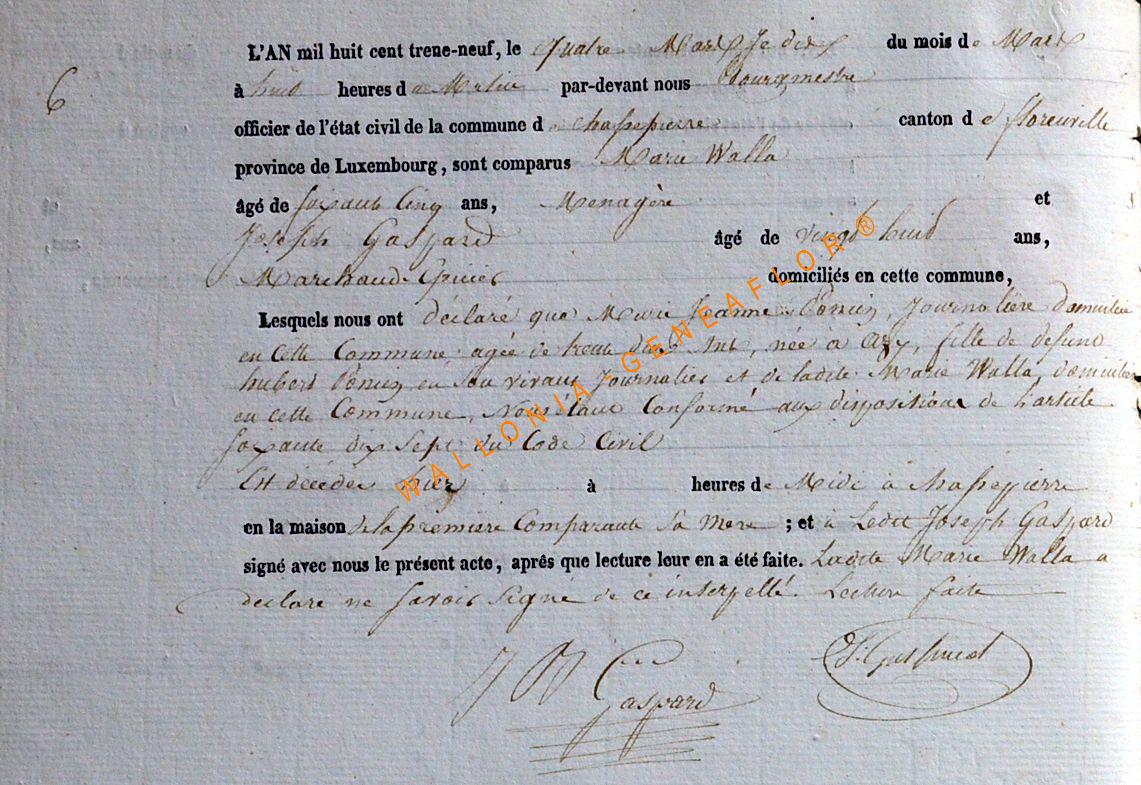 6
L'AN mil huit cent trene-neuf, le quatre Mars du mois de Mars
à huit heures d u Matin par-devant nous Bourgmestre
officier de l'état civil de la commune d e Chassepierre canton d e florenville
province de Luxembourg, sont comparus Marie Walla
âgé de soixante Cinq ans, Menagère et
Joseph Gaspard âgé de vingt huit ans,
Marchand Epicier domiciliés en cette commune,
Lesquels nous ont déclaré que Marie Jeanne Journalière domiciliée
en cette Commune agée de trente ans, née à fille de defunt
hubert en son vivant Journalier et de ladite Marie Walla, domiciliée
en cette Commune, Nous étant Conformé aux dispositions de l'article
soixante dix Sept du Code Civil
Est décédée hier à heures de Midi à Chassepierre
en la maison de la première Comparante Sa Mere ; et à Ledit Joseph Gaspard
signé avec nous le présent acte, après que lecture leur en a été faite. Ladite Marie Walla a
declaré ne savoir Signé de ce interpellé. Lecture faite
Gaspard
WALLONIA-GENEAFLOR ®